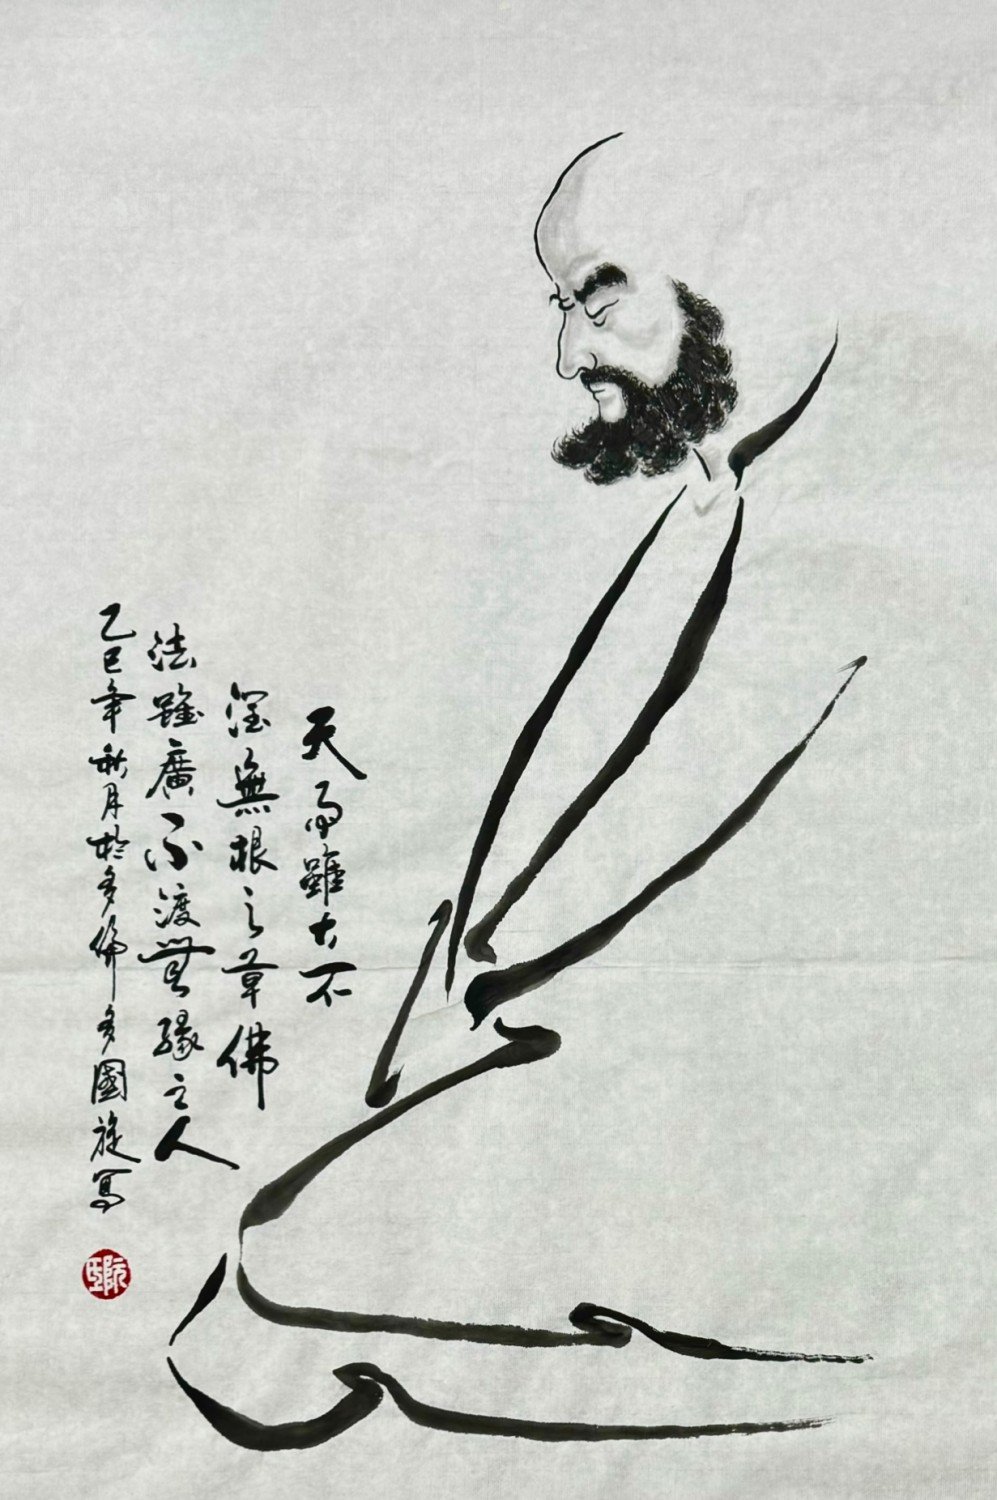 天雨雖大不
潤無根之草佛
法雖廣不渡無緣之人
乙巳年秋月於多倫多國旋寫
阮